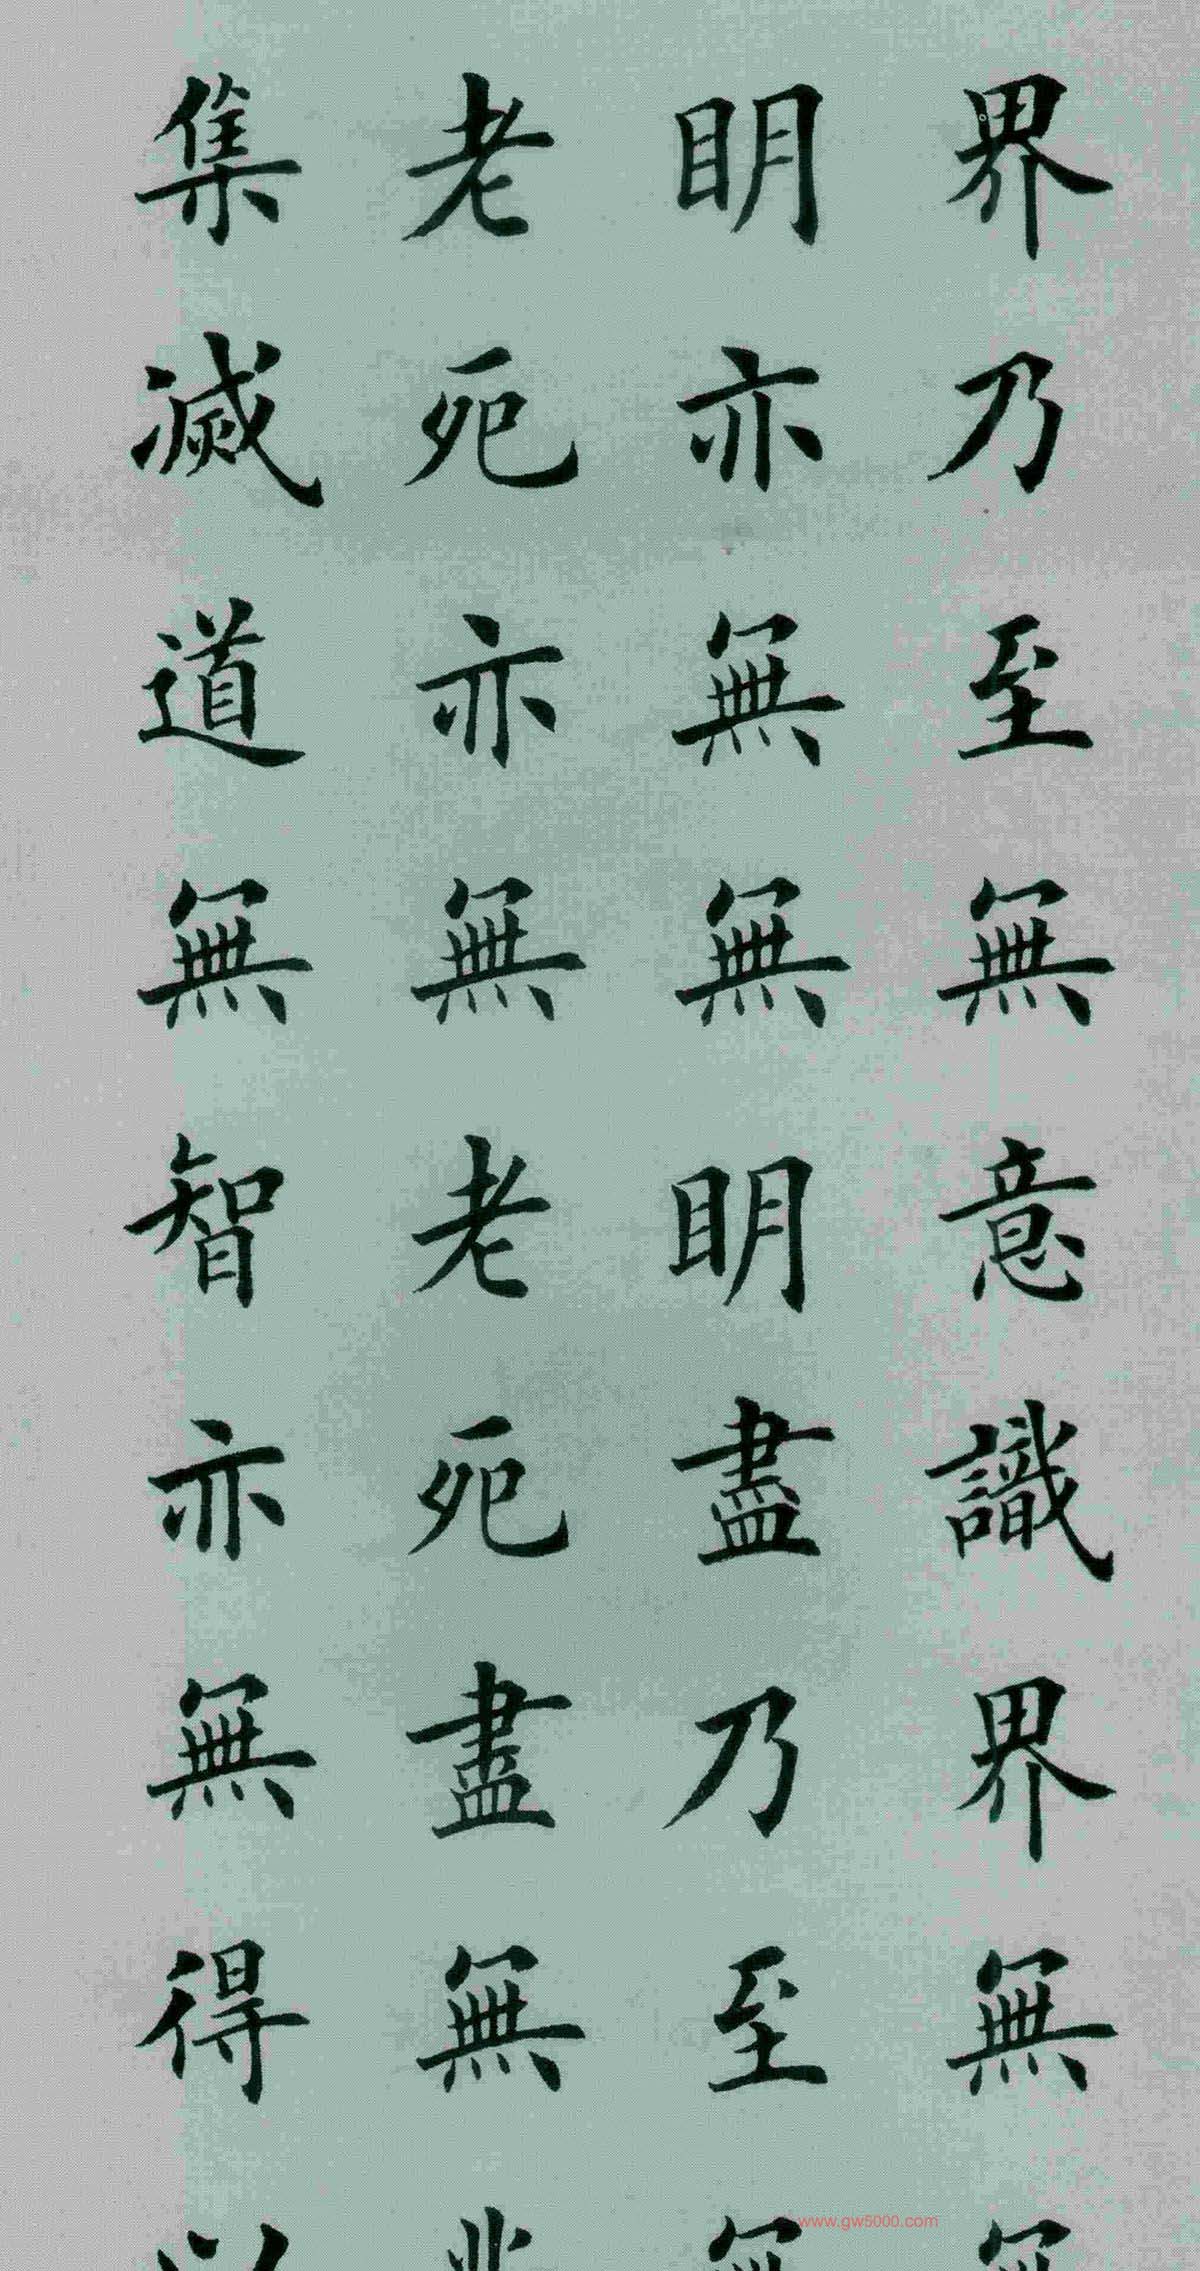 界乃至無意識界無
明亦無無明盡乃至
老死亦無老死盡無
集滅道無智亦無得
www.gw5000.com